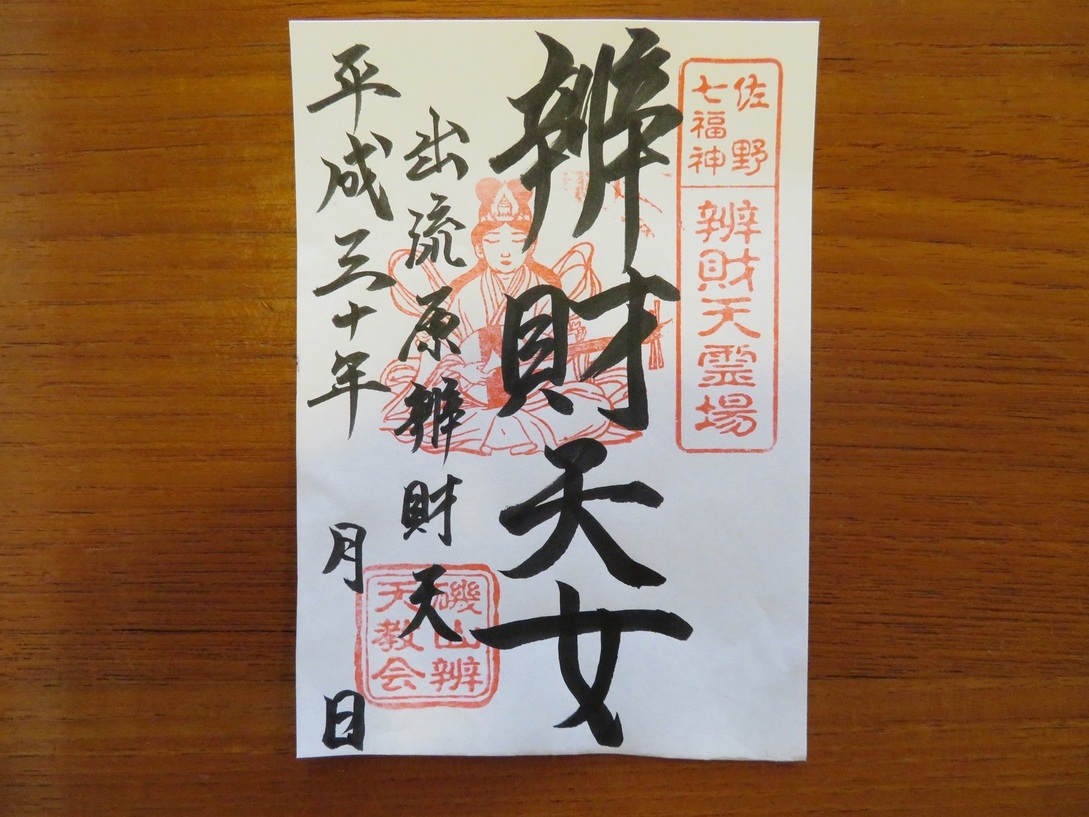 佐野
七福神
辨財天霊場
辨財天女
出流原辨財天
平成三十年　月　日
磯山辨
天教会